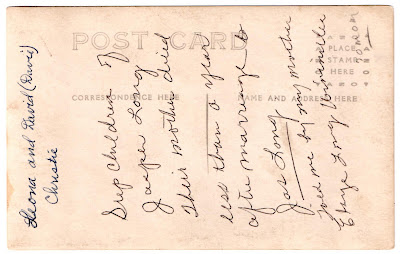 POST CARD
CORRESPONDENCE HERE
NAME AND ADDRESS HERE
PLACE
STAMP
HERE
Leona and David
Christie
Step children of
Jasper Long
Their mother died
less than a year
after marriage to
Jas Long
Told me by my mother
Long